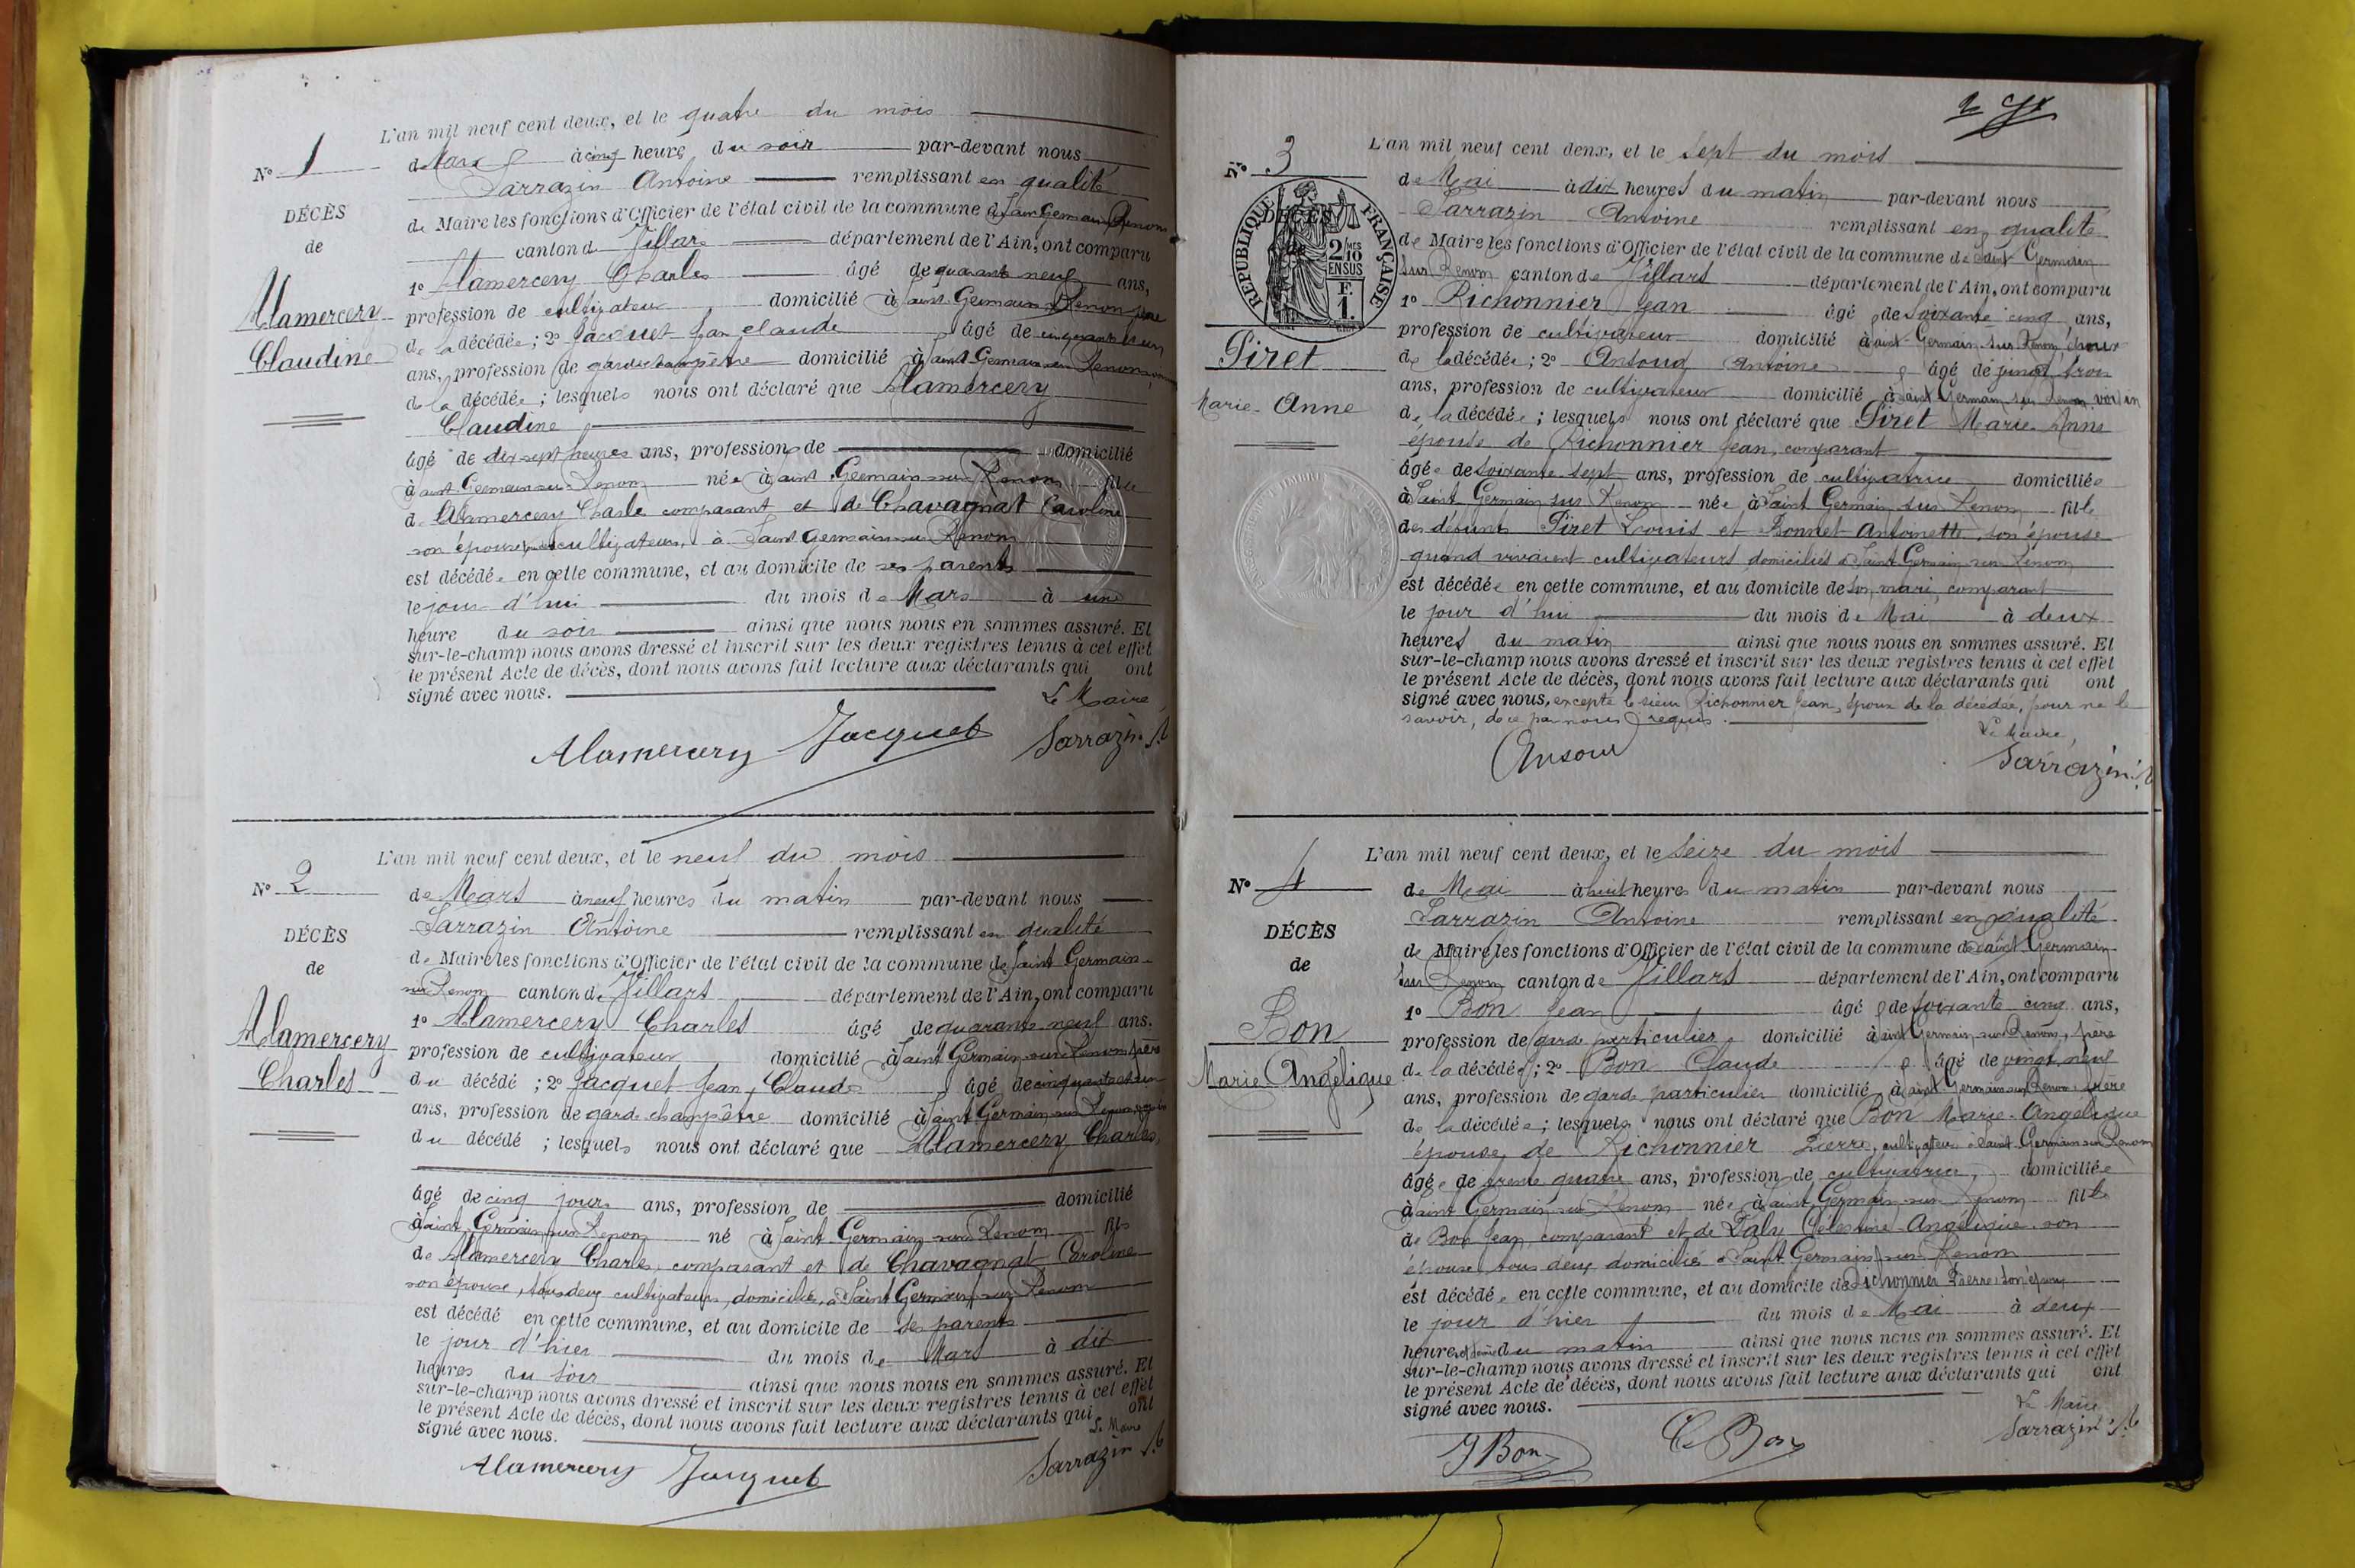 L'an mil neuf cent deux, et le quatre du mois
No 1
de Mars à cinq heures du soir par-devant nous
Sarrazin Antoine remplissant en qualité
DÉCÈS
de Maire les fonctions d'Officier de l'état civil de la commune de Saint Germain Renom
de
canton de Villars département de l'Ain, ont comparu
1o Alamercery Charles âgé de quarante neuf ans,
Alamercery
profession de cultivateur domicilié à Saint Germain s Renom père
de la décédée; 2o Jacquet Jean Claude âgé de cinquante et un
Claudine
ans, profession de garde champêtre domicilié à Saint Germain sur Renom
de la décédée; lesquels nous ont déclaré que Alamercery
Claudine
âgé de dix-sept heures ans, profession de domicilié
à Saint-Germain-sur-Renom née à Saint Germain sur Renom fille
de Alamercery Charle comparant et de Chavagnat Caroline
son épouse cultivateurs, à Saint Germain sur Renom
est décédée en cette commune, et au domicile de ses parents
le jour d'hui du mois de Mars à une
heure du soir ainsi que nous nous en sommes assuré. Et
sur-le-champ nous avons dressé et inscrit sur les deux registres tenus à cet effet
le présent Acte de décès, dont nous avons fait lecture aux déclarants qui ont
signé avec nous.
Le Maire
Alamercery Jacquet Sarrazin A
L'an mil neuf cent deux, et le neuf du mois
No 2
de Mars à neuf heures du matin par-devant nous
Sarrazin Antoine remplissant en qualité
DÉCÈS
de Maire les fonctions d'Officier de l'état civil de la commune de Saint Germain
de
sur Renom canton de Villars département de l'Ain, ont comparu
1o Alamercery Charles âgé de quarante neuf ans.
Alamercery
profession de cultivateur domicilié à Saint Germain sur Renom, père
Charles
du décédé; 2o Jacquet Jean, Claude âgé de cinquante et un
ans, profession de garde champêtre domicilié à Saint Germain sur Renom voisin
du décédé; lesquels nous ont déclaré que Alamercery Charles,
âgé de cinq jours ans, profession de domicilié
à Saint Germain sur Renom né à Saint Germain sur Renom fils
de Alamercery Charles, comparant et de Chavagnat Caroline
son épouse, tous deux cultivateurs, domiciliés à Saint Germain sur Renom
est décédé en cette commune, et au domicile de ses parents
le jour d'hier du mois de Mars à dix
heures du soir ainsi que nous nous en sommes assuré. Et
sur-le-champ nous avons dressé et inscrit sur les deux registres tenus à cet effet
le présent Acte de décès, dont nous avons fait lecture aux déclarants qui ont
signé avec nous.
Le Maire
Alamercery Jacquet Sarrazin A
2
L'an mil neuf cent deux, et le sept du mois
No 3
de Mai à dix heures du matin par-devant nous
Sarrazin Antoine remplissant en qualité
DÉCÈS
de
RÉPUBLIQUE FRANÇAISE
2/10 MES
EN SUS
F.
1.
de Maire les fonctions d'Officier de l'état civil de la commune de Saint Germain
sur Renom canton de Villars département de l'Ain, ont comparu
1o Richonnier Jean âgé de soixante cinq ans,
profession de cultivateur domicilié à Saint Germain sur Renom, époux
Piret
de la décédée; 2o Ansoud Antoine âgé de trois
ans, profession de cultivateur domicilié à Saint Germain sur Renom voisin
Marie-Anne
de la décédée; lesquels nous ont déclaré que Piret Marie-Anne
épouse de Richonnier Jean, comparant
âgée de soixante-sept ans, profession de cultivatrice domiciliée
à Saint Germain sur Renom née à Saint Germain sur Renom fille
des défunts Piret Louis et Bonnet Antoinette, son épouse
quand vivaient cultivateurs domiciliés à Saint Germain sur Renom
est décédée en cette commune, et au domicile de son mari, comparant
le jour d'hui du mois de Mai à deux
heures du matin ainsi que nous nous en sommes assuré. Et
sur-le-champ nous avons dressé et inscrit sur les deux registres tenus à cet effet
le présent Acte de décès, dont nous avons fait lecture aux déclarants qui ont
signé avec nous, excepté le sieur Richonnier Jean, époux de la décédée, pour ne le
savoir, de ce par nous requis.
Le Maire,
Ansoud Sarrazin A
L'an mil neuf cent deux, et le seize du mois
No 4
de Mai à huit heures du matin par-devant nous
Sarrazin Antoine remplissant en qualité
DÉCÈS
de Maire les fonctions d'Officier de l'état civil de la commune de Saint Germain
de
sur Renom canton de Villars département de l'Ain, ont comparu
1o Bon Jean âgé de soixante cinq ans,
Bon
profession de garde particulier domicilié à Saint Germain sur Renom, père
Marie-Angélique
de la décédée; 2o Bon Claude âgé de vingt neuf
ans, profession de garde particulier domicilié à Saint Germain sur Renom, frère
de la décédée; lesquels nous ont déclaré que Bon Marie-Angélique
épouse de Richonnier Pierre, cultivateur à Saint-Germain sur Renom
âgée de trente quatre ans, profession de cultivatrice, domiciliée
à Saint Germain sur Renom née à Saint Germain sur Renom fille
de Bon Jean, comparant et de Daly Célestine-Angélique son
épouse tous deux domiciliés à Saint Germain sur Renom
est décédée en cette commune, et au domicile de Richonnier Pierre, son époux
le jour d'hier du mois de Mai à deux
heures et demie du matin ainsi que nous nous en sommes assuré. Et
sur-le-champ nous avons dressé et inscrit sur les deux registres tenus à cet effet
le présent Acte de décès, dont nous avons fait lecture aux déclarants qui ont
signé avec nous.
Le Maire
J Bon C. Bon Sarrazin A